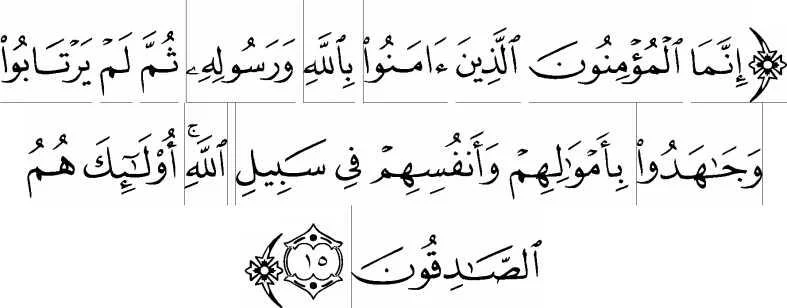 ﴿إِنَّمَا ٱلْمُؤْمِنُونَ ٱلَّذِينَ ءَامَنُوا۟ بِٱللَّهِ وَرَسُولِهِۦ ثُمَّ لَمْ يَرْتَابُوا۟
وَجَـٰهَدُوا۟ بِأَمْوَٰلِهِمْ وَأَنفُسِهِمْ فِى سَبِيلِ ٱللَّهِ ۚ أُو۟لَـٰٓئِكَ هُمُ
ٱلصَّـٰدِقُونَ ١٥﴾